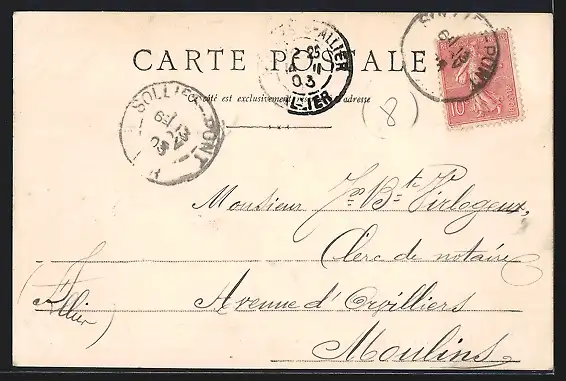 CARTE POSTALE
Ce côté est exclusivement réservé à l'adresse
SOLLIÈS-PONT
03
MOULINS-S-ALLIER
03
ALLIER
SOLLIÈS-PONT
10
(8)
Monsieur Jn Bte Virlogeux,
Clerc de notaire
Avenue d'Orvilliers
(Allier)
Moulins